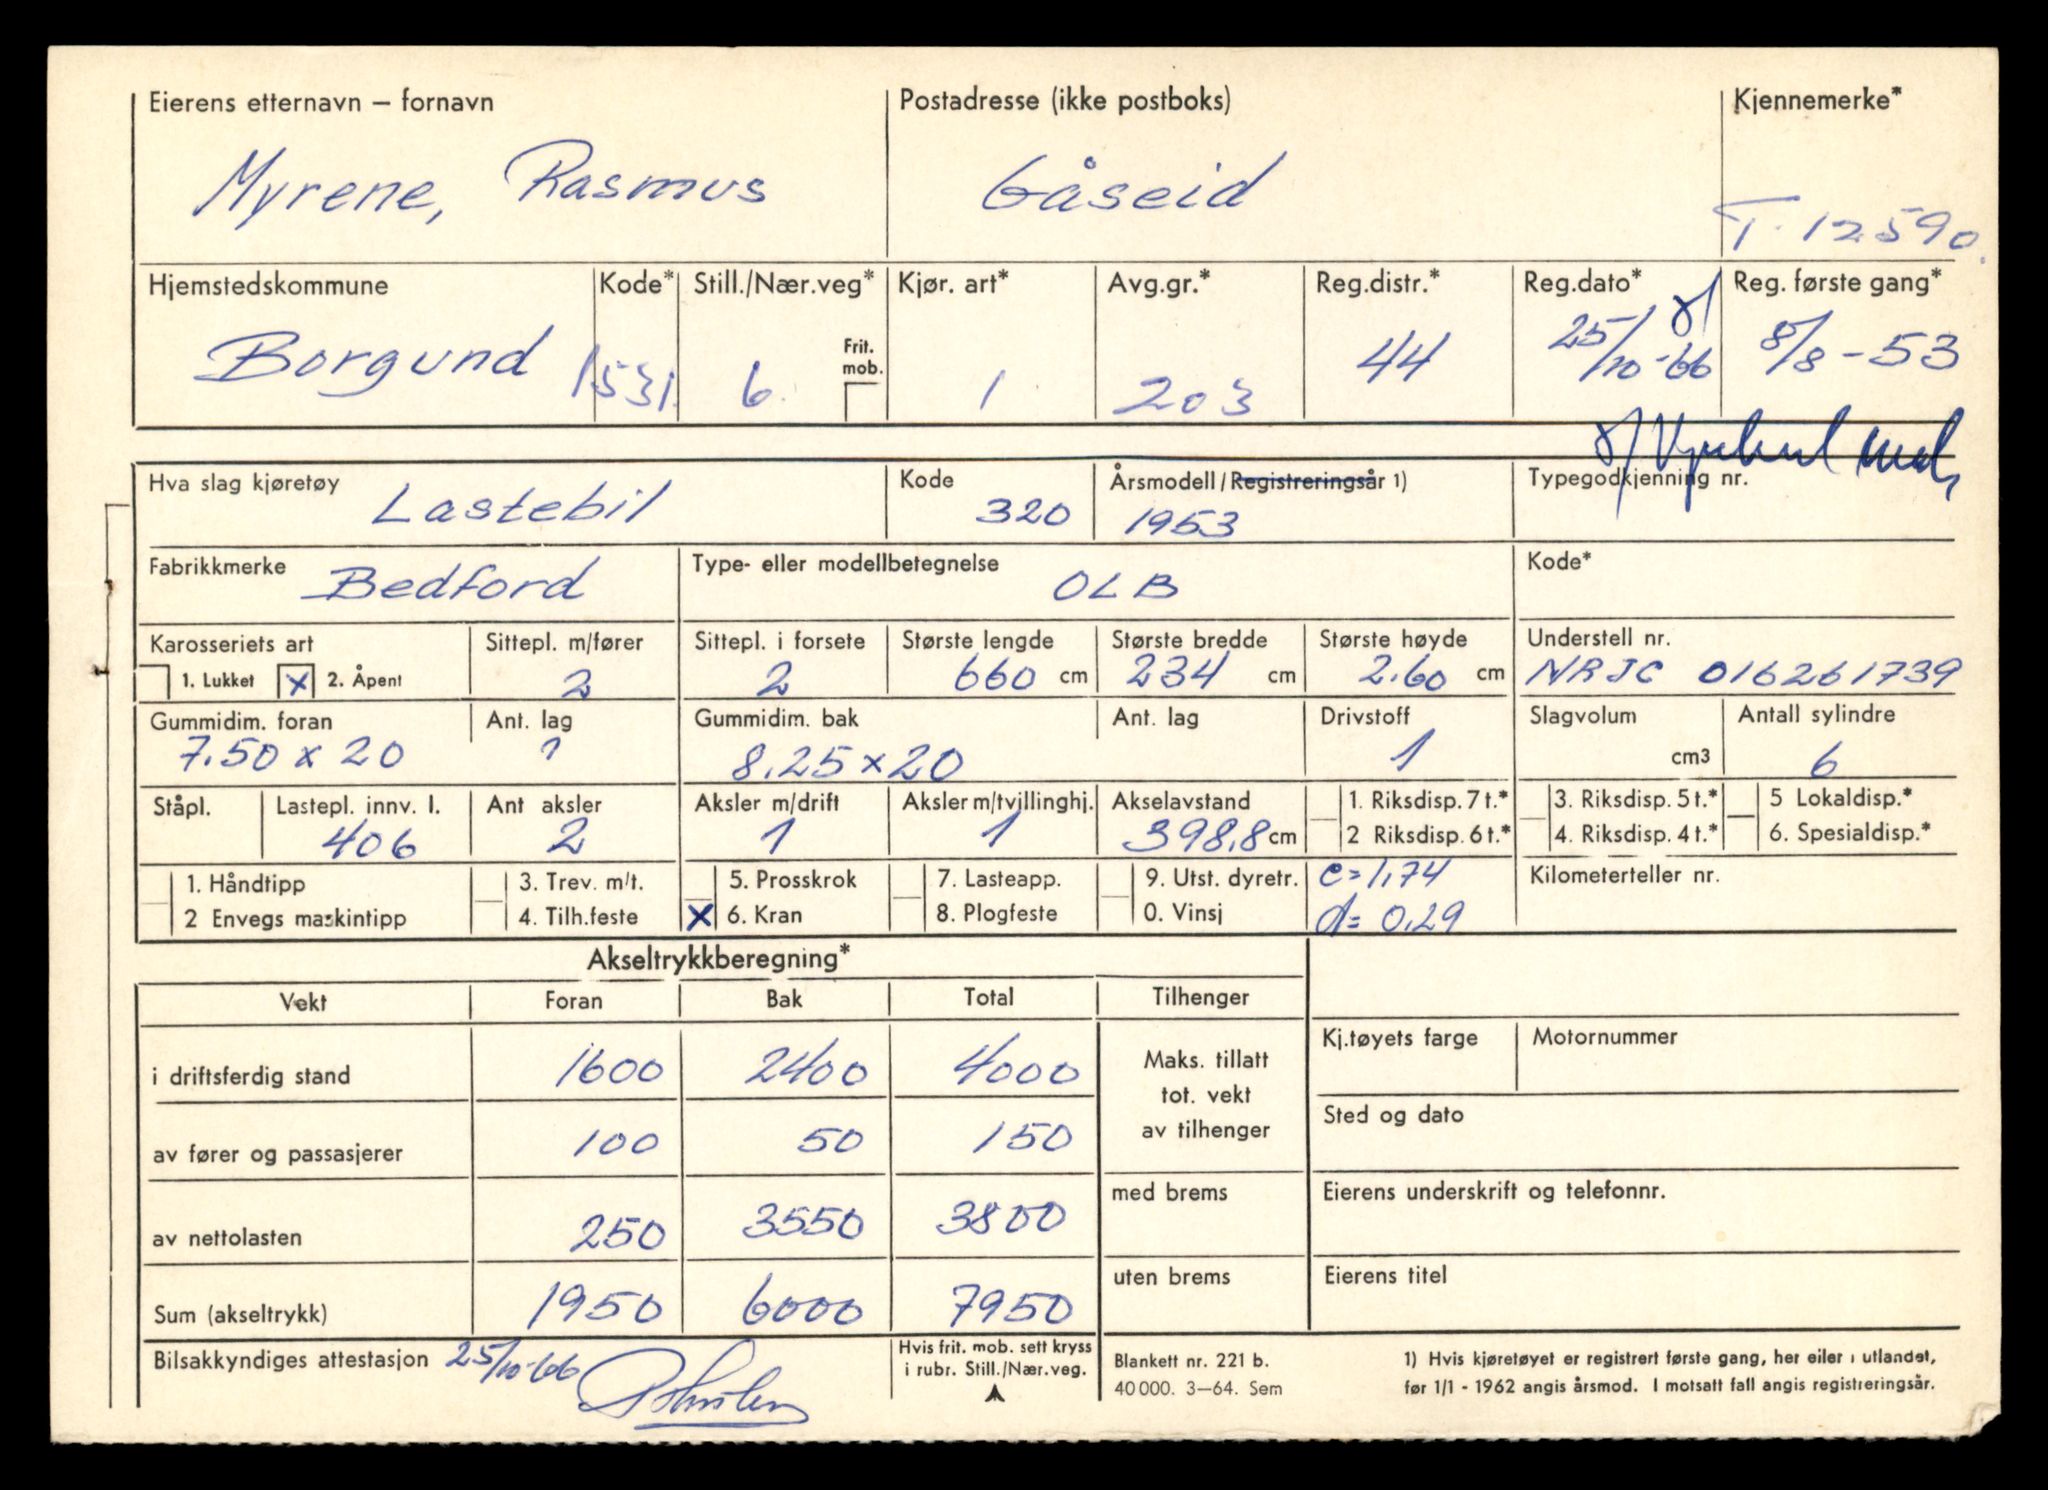 Eierens etternavn – fornavn Postadresse (ikke postboks) Kjennemerke*
Myrene, Rasmus Gåseid T. 12590
Hjemstedskommune Kode* Still./Nær.veg* Kjør. art* Avg.gr.* Reg.distr.* Reg.dato* Reg. første gang*
Borgund 1531. 6. Frit. mob. 1 203 44 25/10-66 8/8-53
Hva slag kjøretøy Kode Årsmodell/Registreringsår 1) Typegodkjenning nr.
Lastebil 320 1953
Fabrikkmerke Bedford Type- eller modellbetegnelse OLB Kode*
Karosseriets art Sittepl. m/fører Sittepl. i forsete Største lengde Største bredde Største høyde Understell nr.
1. Lukket x 2. Åpent 2 2 660 cm 234 cm 2.60 cm NRJC 016261739
Gummidim. foran Ant. lag Gummidim. bak Ant. lag Drivstoff Slagvolum Antall sylindre
7.50 x 20 8.25 x 20 1 cm3 6
Ståpl. Lastepl. innv. l. Ant aksler Aksler m/drift Aksler m/tvillinghj. Akselavstand 1. Riksdisp. 7 t.* 3. Riksdisp. 5 t.* 5 Lokaldisp.*
406 2 1 1 398,8 cm 2 Riksdisp. 6 t.* 4. Riksdisp. 4 t.* 6. Spesialdisp.*
1. Håndtipp 3. Trev. m/t. 5. Prosskrok 7. Lasteapp. 9. Utst. dyretr. c=1,74 Kilometerteller nr.
2 Envegs maskintipp 4. Tilh.feste x 6. Kran 8. Plogfeste 0. Vinsj d= 0.29
Akseltrykkberegning*
Vekt Foran Bak Total Tilhenger
i driftsferdig stand 1600 2400 4000 Maks. tillatt tot. vekt av tilhenger Kj.tøyets farge Motornummer
av fører og passasjerer 100 50 150 Sted og dato
av nettolasten 250 3550 3800 med brems Eierens underskrift og telefonnr.
Sum (akseltrykk) 1950 6000 7950 uten brems Eierens titel
Bilsakkyndiges attestasjon 25/10-66 Hvis frit. mob. sett kryss i rubr. Still./Nær.veg.
Blankett nr. 221 b. 1) Hvis kjøretøyet er registrert første gang, her eller i utlandet,
40 000. 3–64. Sem før 1/1 - 1962 angis årsmod. I motsatt fall angis registreringsår.